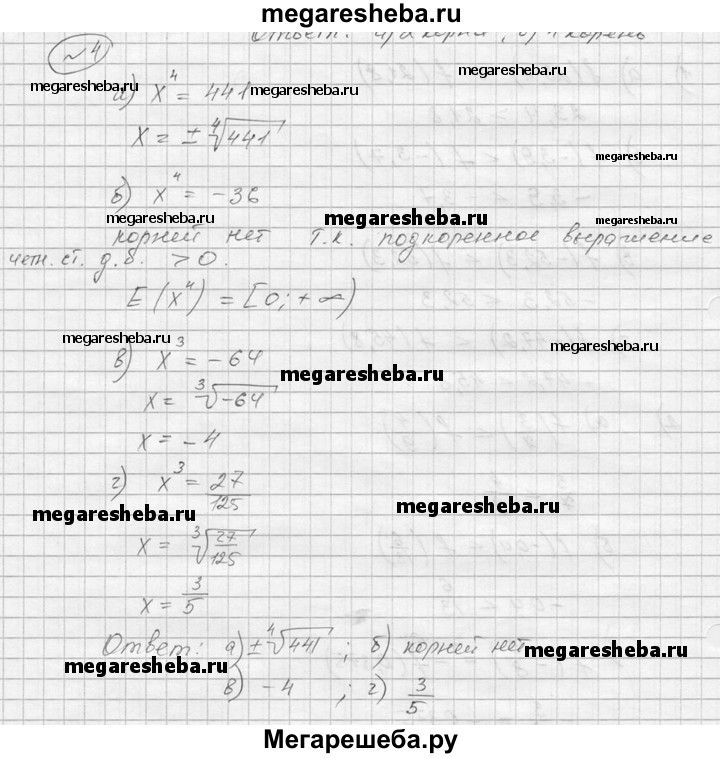 megaresheba.ru
Ответ: а) 2 корня; б) 1 корень
№4
megaresheba.ru
megaresheba.ru megaresheba.ru
а) x⁴ = 441
x = ± ⁴√441
megaresheba.ru
б) x⁴ = -36
megaresheba.ru megaresheba.ru megaresheba.ru
корней нет т.к. подкоренное выражение
четн. ст. д.б. > 0.
E(x⁴) = [0; +∞)
megaresheba.ru megaresheba.ru
в) x³ = -64
megaresheba.ru
x = ³√-64
x = -4
г) x³ = 27/125
megaresheba.ru megaresheba.ru
x = ³√27/125
x = 3/5
Ответ: а) ± ⁴√441 ; б) корней нет
megaresheba.ru megaresheba.ru
в) -4 ; г) 3/5
Мегарешеба.ру